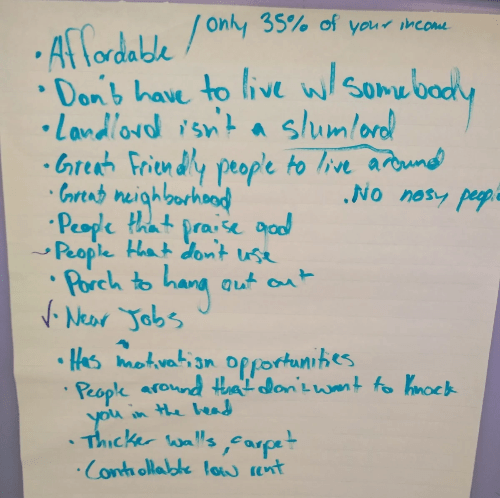 / only 35% of your income
• Affordable
• Don't have to live w/ somebody
• Landlord isn't a slumlord
• Great Friendly people to live around
• Great neighborhood
• No nosy people
• People that praise god
• People that don't use
• Porch to hang out out
✓ • Near Jobs
• Has motivation opportunities
• People around that don't want to knock
you in the head
• Thicker walls, carpet
• Controllable low rent